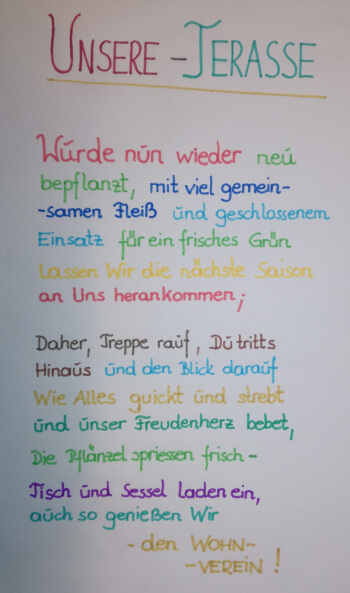 UNSERE - TERASSE
Würde nun wieder neu
bepflanzt, mit viel gemein-
-samen Fleiß und geschlossenem
Einsatz für ein frisches Grün
Lassen Wir die nächste Saison
an Uns herankommen;
Daher, Treppe rauf, Du tritts
Hinaus und den Blick darauf
Wie Alles quickt und strebt
und unser Freudenherz bebet,
Die Pflänzel spriessen frisch-
Tisch und Sessel laden ein,
auch so genießen Wir
- den WOHN-
-VEREIN!